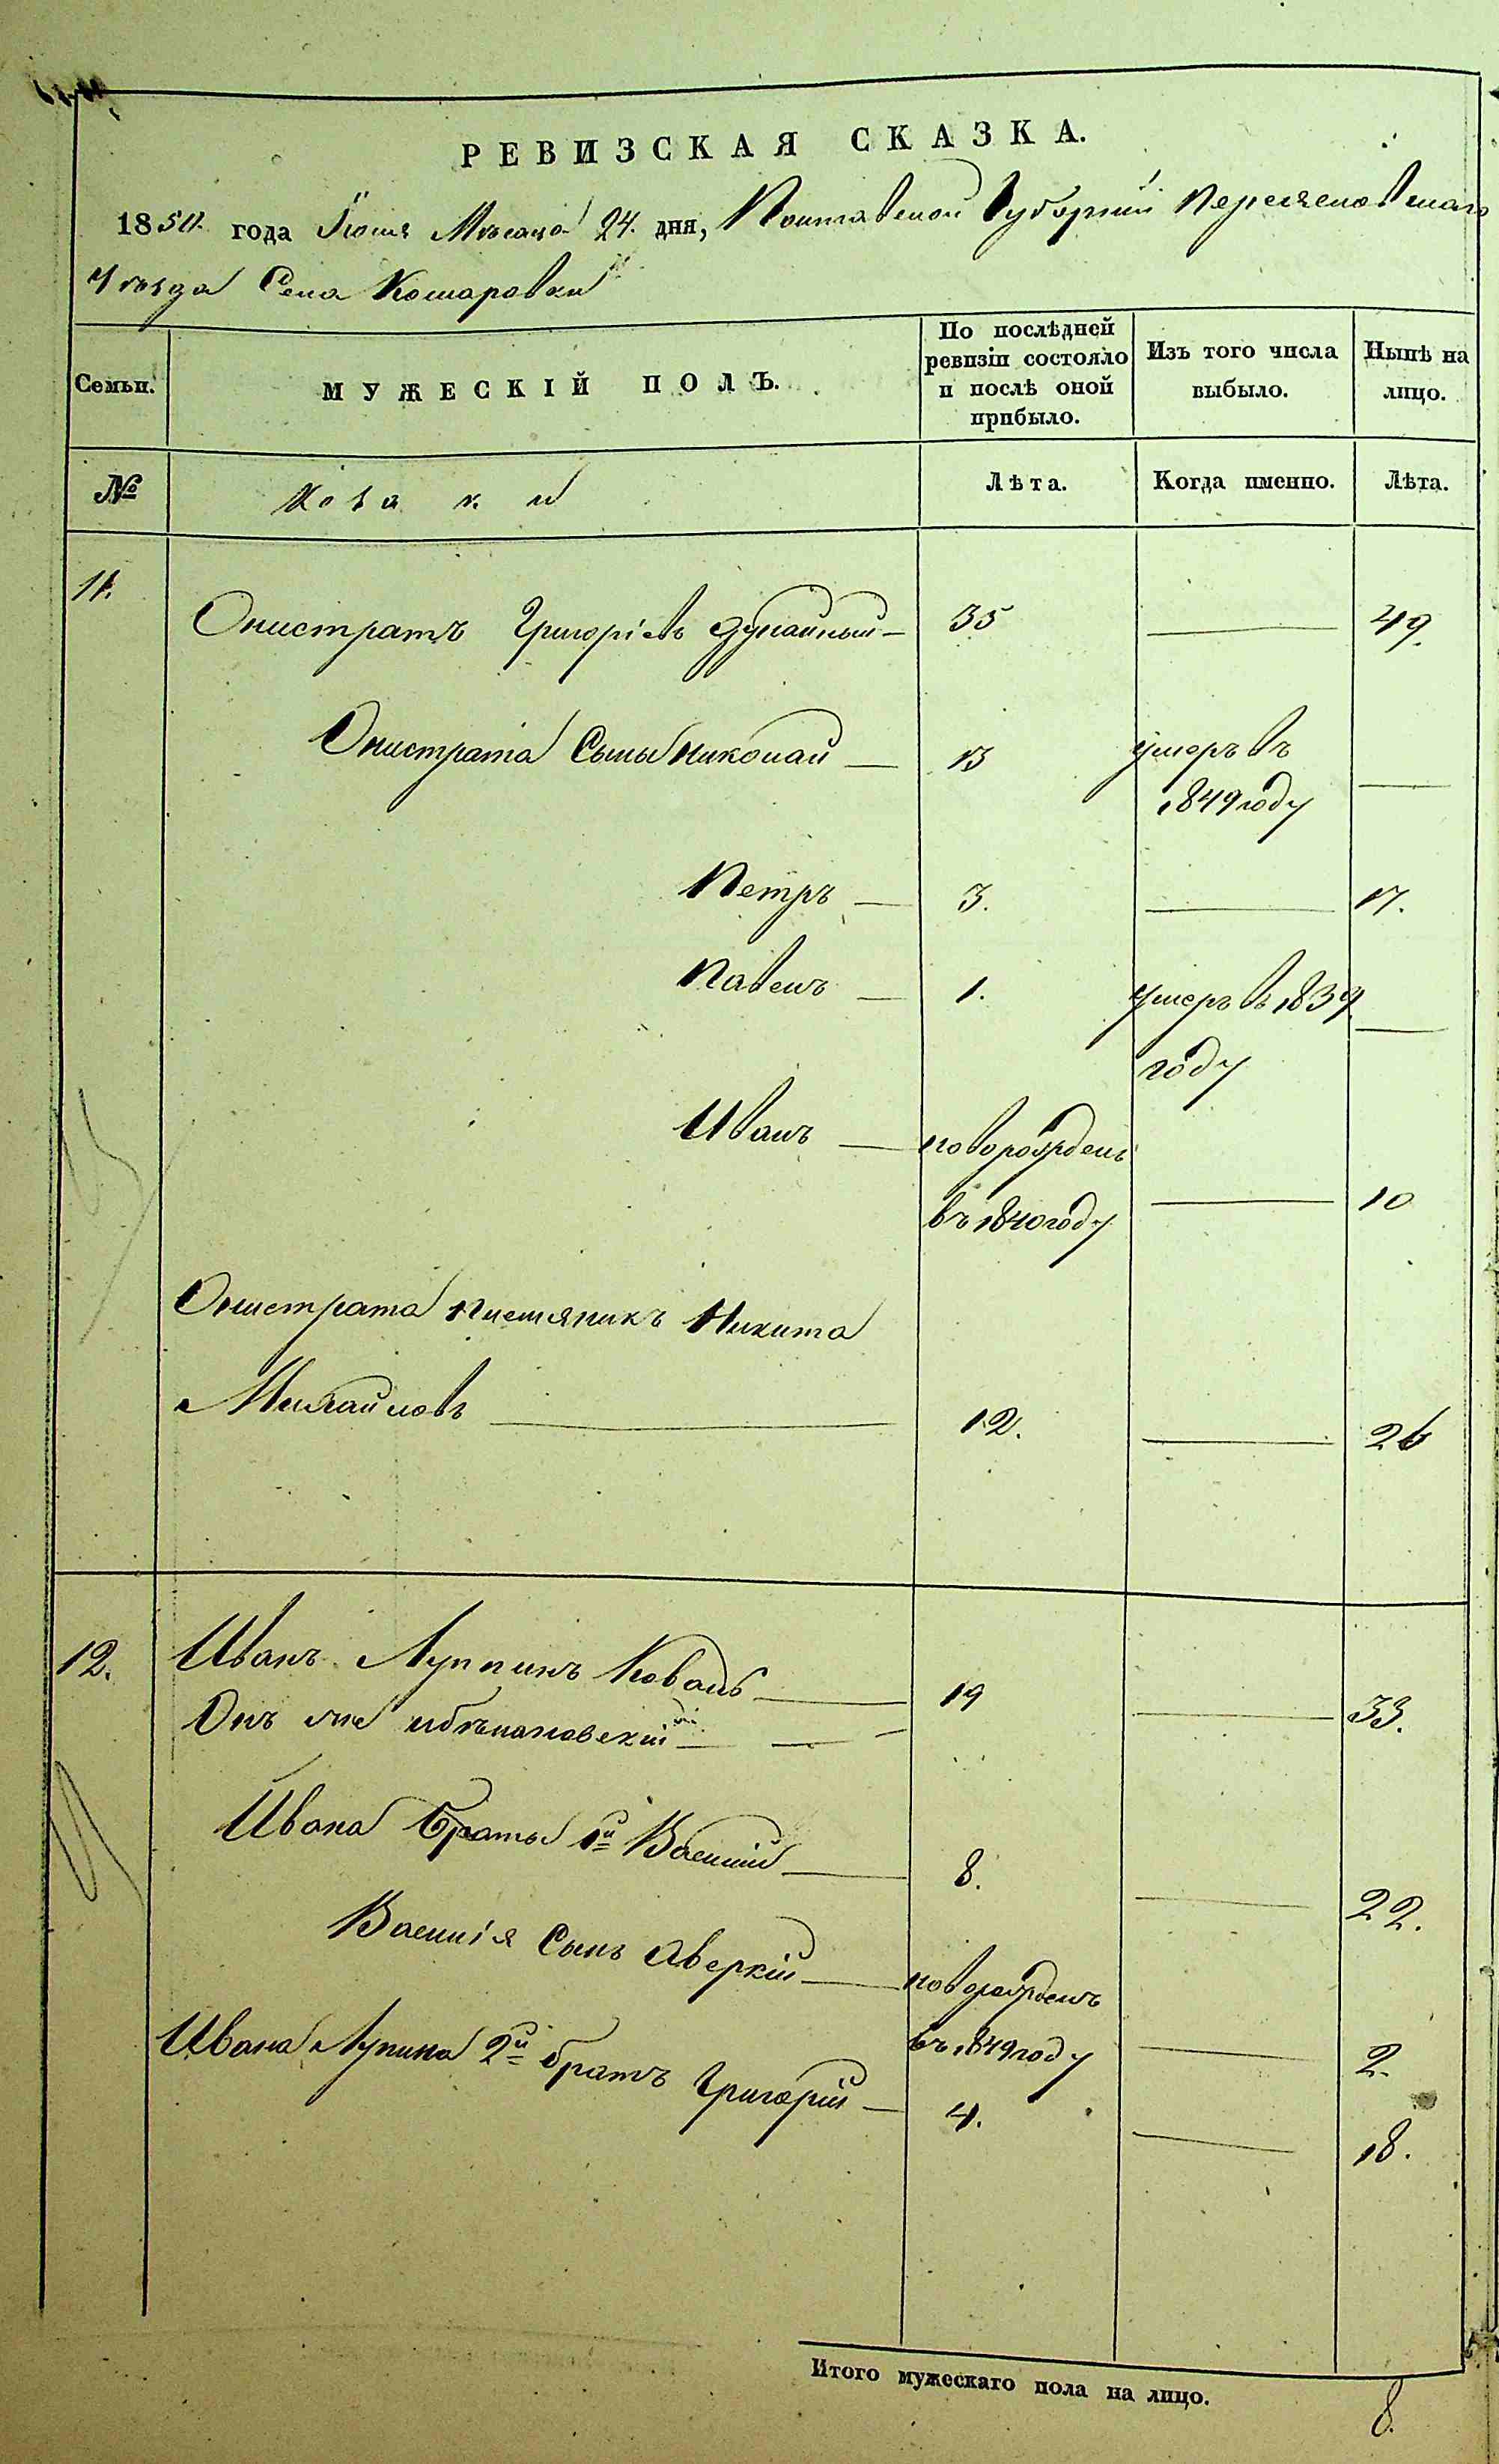 РЕВИЗСКАЯ СКАЗКА.
1850. года Іюня Мѣсяца 24. дня, Полтавской Губерніи Переясловскаго
Уѣзда Села Комаровки
Семьи. МУЖЕСКІЙ ПОЛЪ. По послѣдней ревизіи состояло и послѣ оной прибыло. Изъ того числа выбыло. Нынѣ на лицо.
№ Козаки Лѣта. Когда именно. Лѣта.
11. Онистратъ Григорьевъ Дунайный — 35 — 49.
Онистрата Сыны Николай — 13 умеръ въ
1849 году —
Петръ — 3. — 17.
Павелъ — 1. умеръ въ 1839 —
году
Иванъ — новорожденъ
въ 1840 году — 10
Онистрата племяникъ Никита
Михайловъ — 12. — 26
12. Иванъ Луппинъ Коваль — 19 — 33.
Онъ же
Ивана Браты 1й Василій — 8. — 22.
Василія Сынъ Аверкій — новорожденъ
въ 1849 году — 2.
Ивана Лупина 2й братъ Григорій — 4. — 18.
Итого мужескаго пола на лицо. 8.